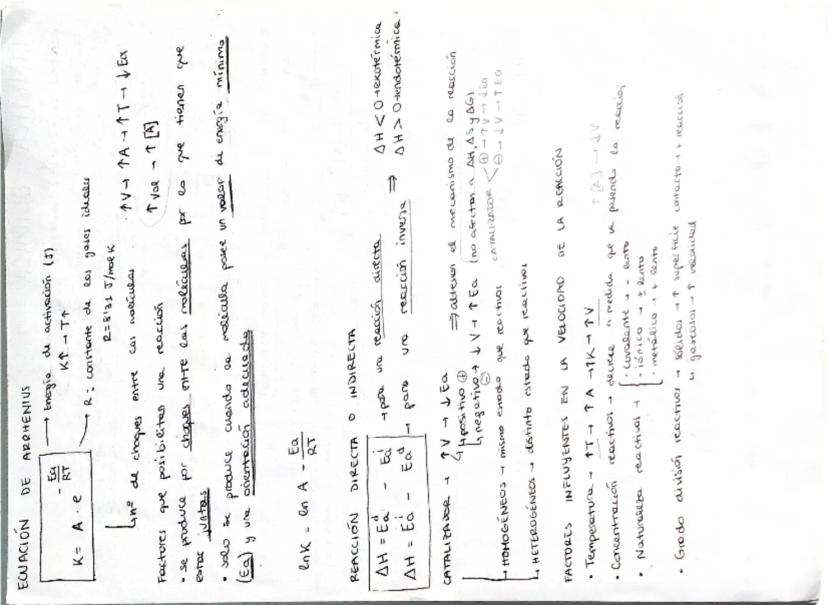 ECUACIÓN DE ARRHENIUS
K = A · e^(-Ea/RT) → Energía de activación (J)
K↑ → T↑
→ R: constante de los gases ideales
R=8'31 J/mol K
↳ nº de choques entre las moléculas · ↑V → ↑A → ↑T → ↓Ea
↑Vol → ↑[A]
Factores que posibilitan una reacción
• se produce por choques entre las moléculas por lo que tienen que
estar juntas
• solo se produce cuando la molécula posee un valor de energía mínimo
(Ea) y una orientación adecuada
lnK = ln A - Ea/RT
REACCIÓN DIRECTA O INDIRECTA
ΔH = Ea^d - Ea^i → para una reacción directa
ΔH = Ea^i - Ea^d → para una reacción inversa ⇒
ΔH < 0 → exotérmica
ΔH > 0 → endotérmica
CATALIZADOR → ↑V → ↓Ea ⇒ alteran el mecanismo de la reacción
↳ positivo ⊕
↳ negativo → ↓V → ↑Ea (no afectan a ΔH, ΔS y ΔG)
⊖
CATALIZADOR < ⊕ → ↑V → ↓Ea
⊖ → ↓V → ↑Ea
→ HOMOGÉNEOS → mismo estado que reactivos
→ HETEROGÉNEOS → distinto estado que reactivos
FACTORES INFLUYENTES EN LA VELOCIDAD DE LA REACCIÓN
• Temperatura → ↑T → ↑A → ↑K → ↑V
↑[A] → ↓V
• Concentración reactivos → decrece a medida que va pasando la reacción
• Naturaleza reactivos → { · covalente → - lento
· iónico → ± lento
· metálico → + lento
• Grado división reactivos → sólidos → ↑ superficie contacto → + reacción
↳ gaseosos → ↑ velocidad